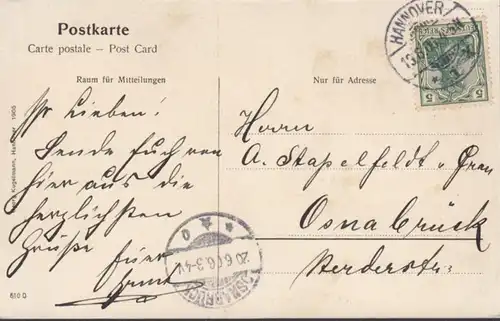 Postkarte
Carte postale – Post Card
Raum für Mitteilungen
Nur für Adresse
Ihr Lieben!
Sende Euch von
hier aus die
herzlichsten
Grüße Euer
Ernst
Herrn
A. Stapelfeldt u. Frau
Osnabrück
Herderstr.
HANNOVER
20.6.06.3-4N.
OSNABRÜCK
5 5
Hannover 1905
610 D